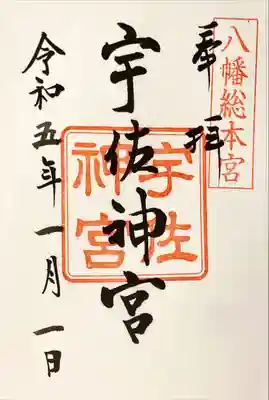 八幡総本宮
奉拝
宇佐神宮
宇佐神宮
令和五年一月一日